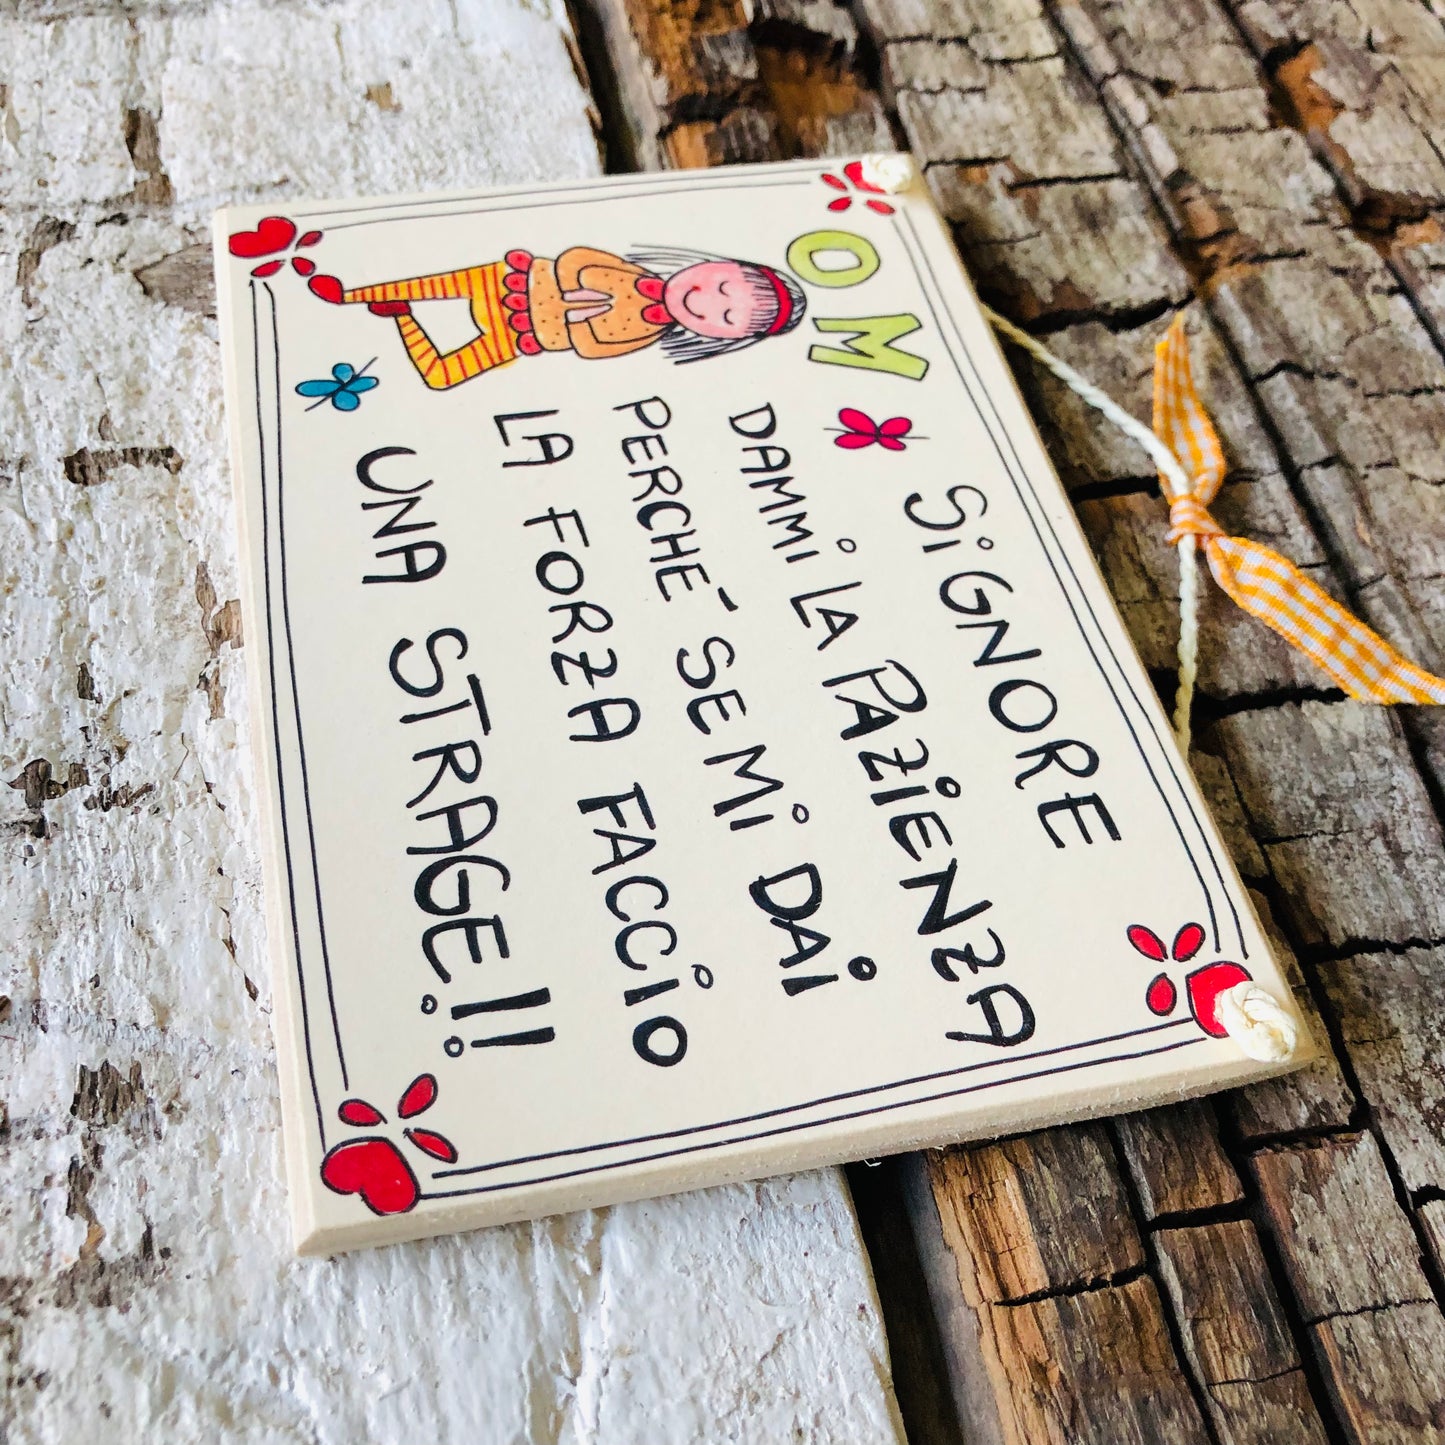 OM
SiGNORE
DAMMi LA PAZiENZA
PERCHE' SE Mi DAi
LA FORZA FACCiO
UNA STRAGE!!